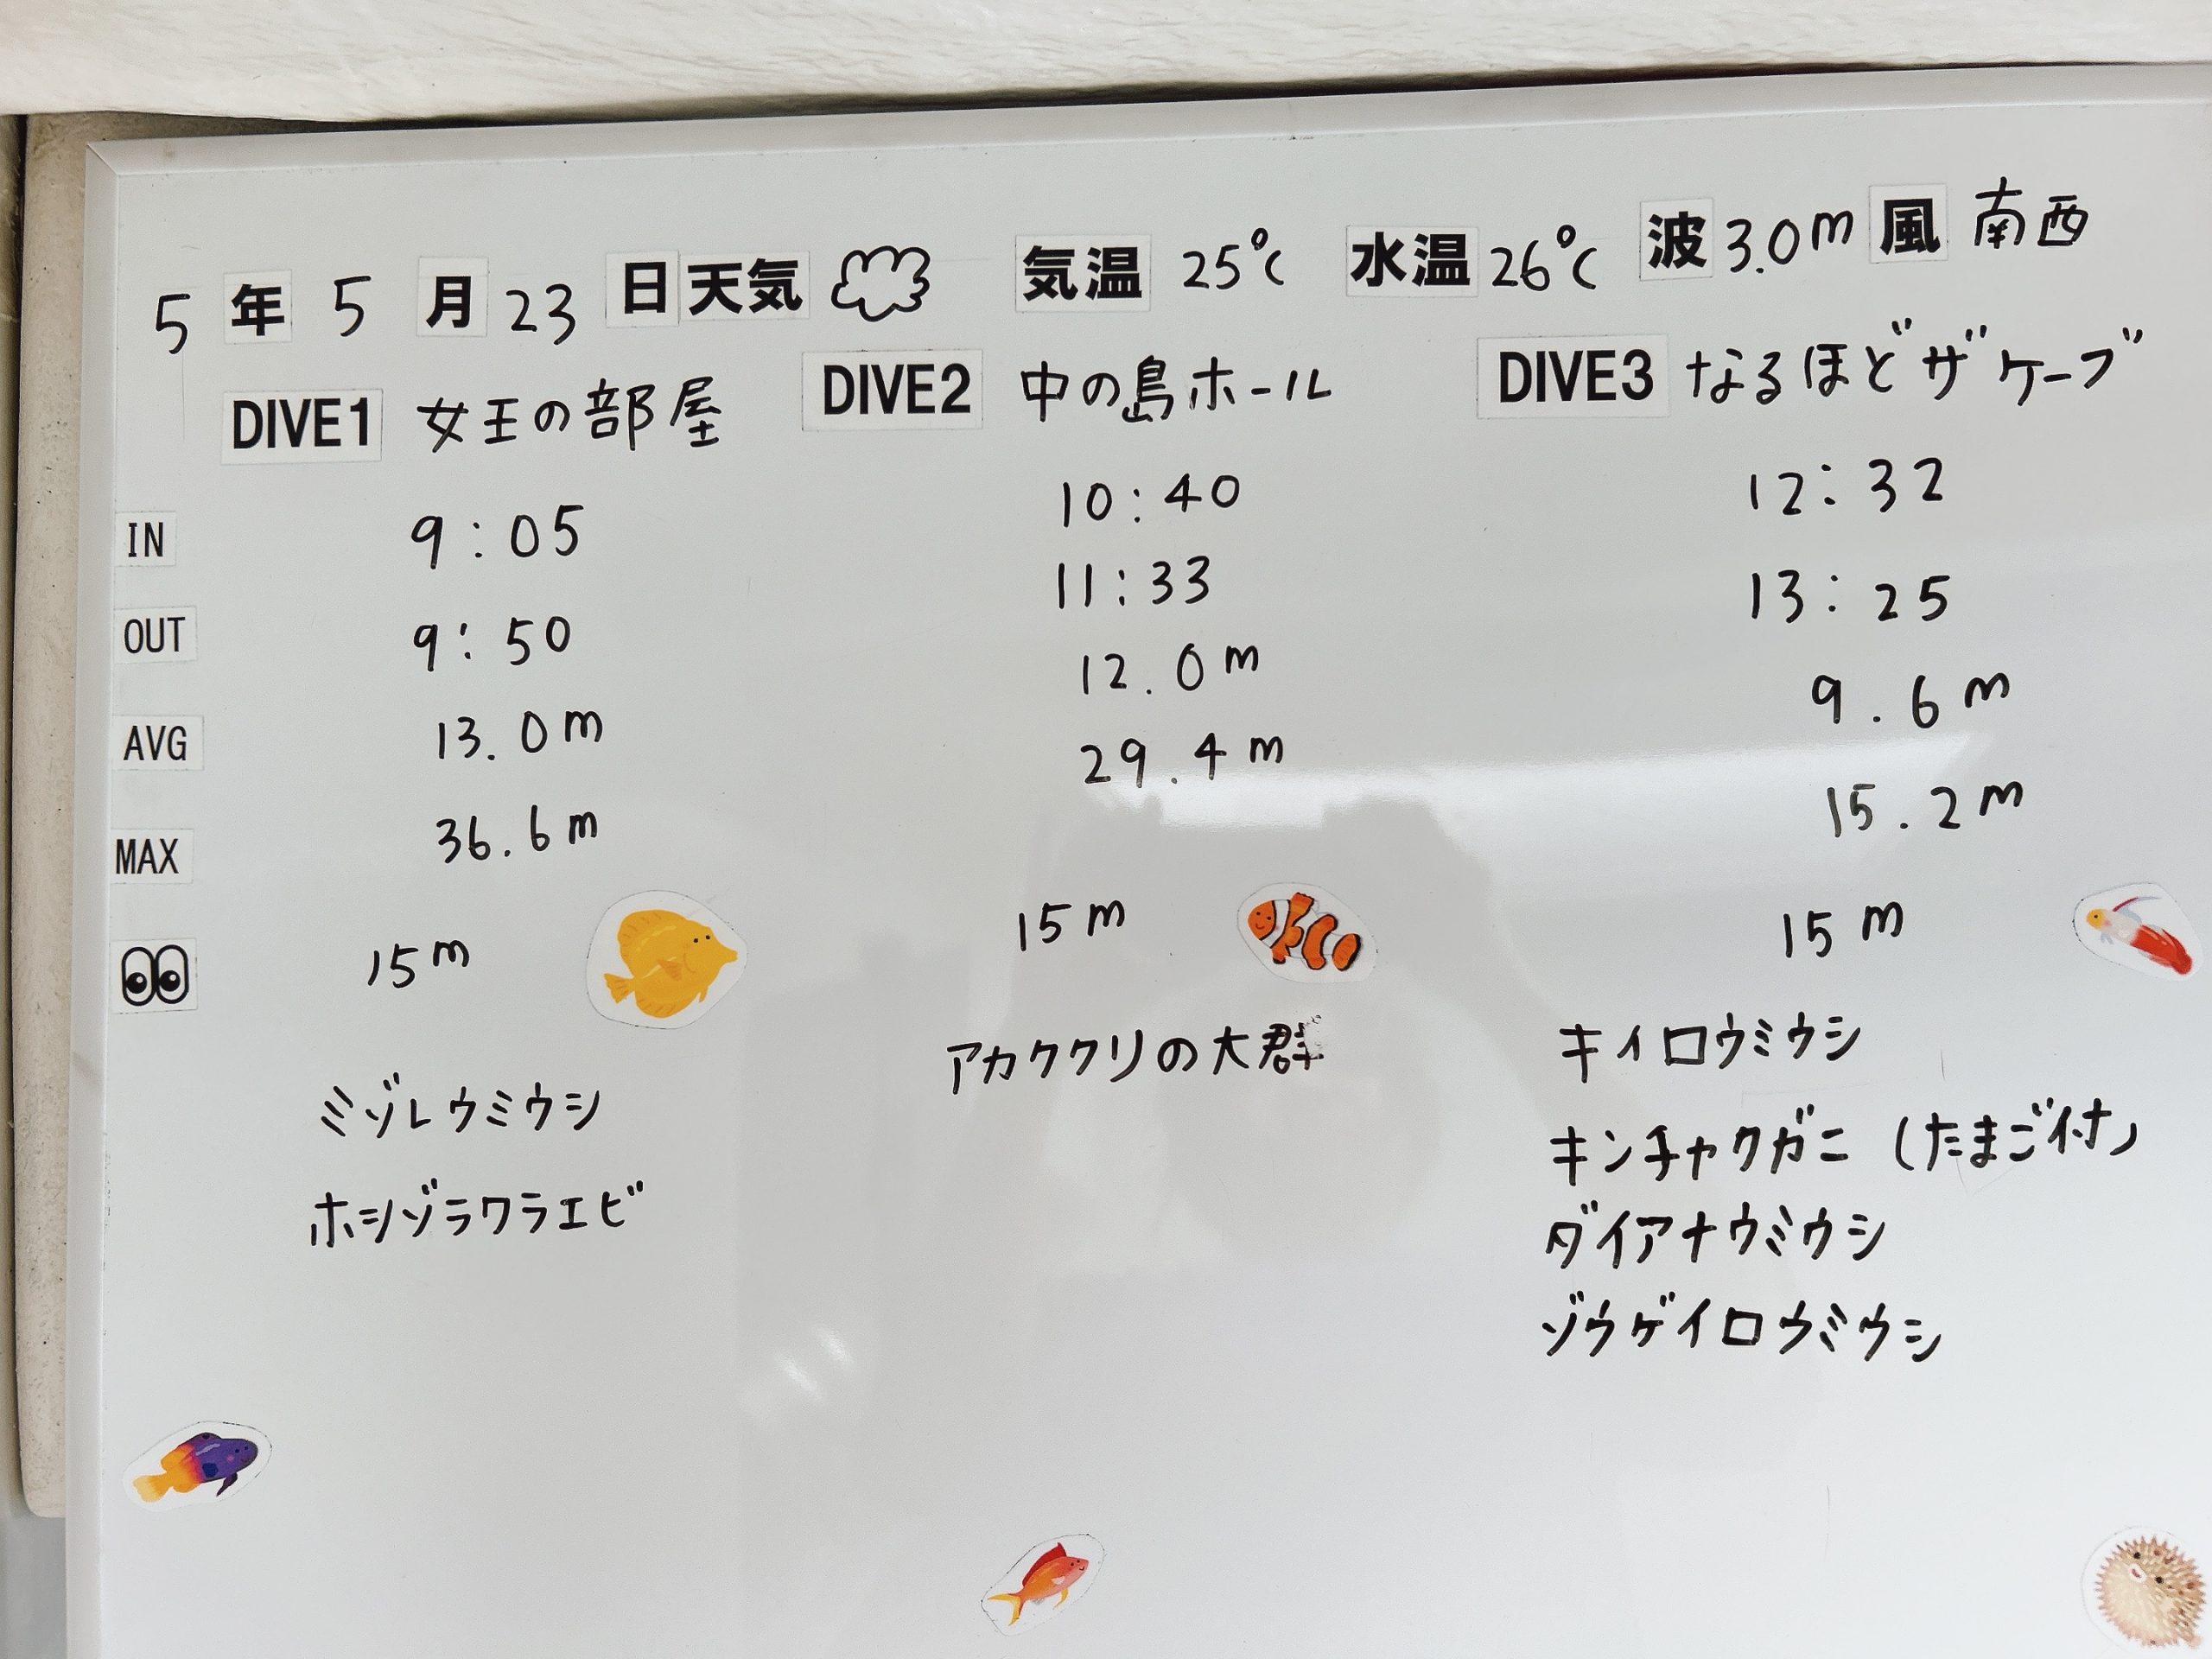 5年 5月 23日 天気 気温 25℃ 水温 26℃ 波 3.0m 風 南西
DIVE1 女王の部屋 DIVE2 中の島ホール DIVE3 なるほどザケーブ
IN 9:05 10:40 12:32
OUT 9:50 11:33 13:25
AVG 13.0m 12.0m 9.6m
MAX 36.6m 29.4m 15.2m
15m 15m 15m
ミゾレウミウシ アカククリの大群 キイロウミウシ
ホシゾラワラエビ キンチャクガニ (たまご付)
ダイアナウミウシ
ゾウゲイロウミウシ